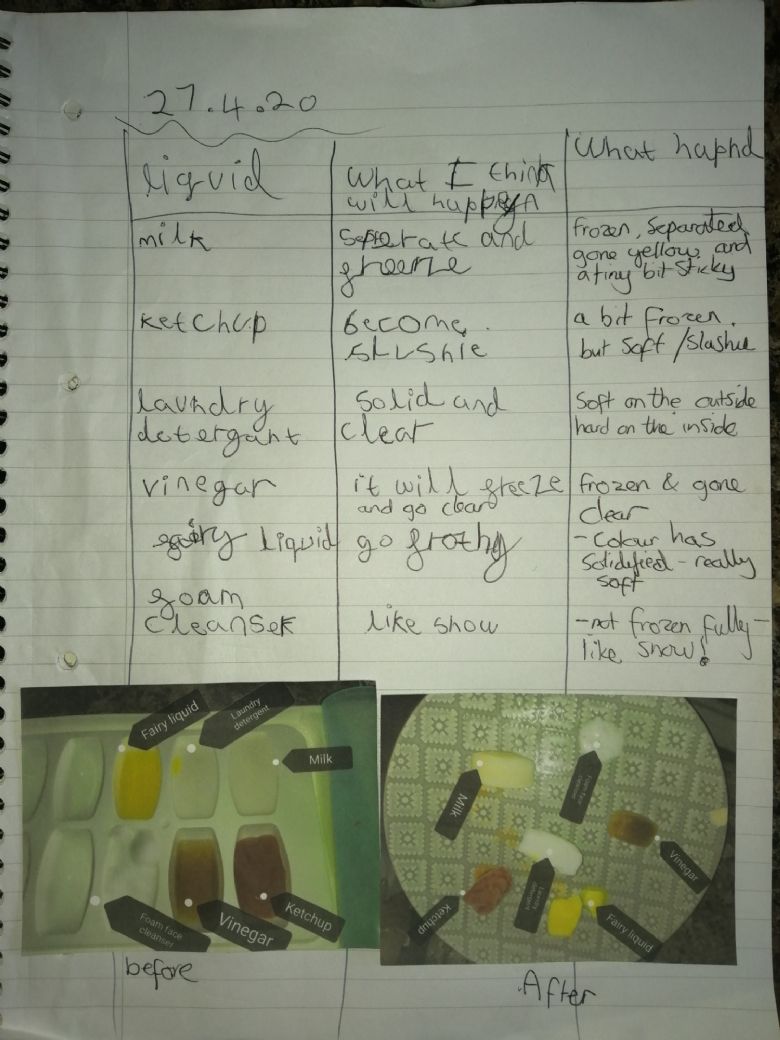 27.4.20
liquid
What I think
will happen
What hapnd
milk
seperate and
freeze
frozen, separated,
gone yellow, and
a tiny bit sticky
ketchup
become
slushie
a bit frozen.
but soft / slashie
laundry
detergant
solid and
clear
soft on the outside
hard on the inside
vinegar
it will freeze
and go clear
frozen & gone
clear
fairy liquid
go frothy
- colour has
solidified - really
soft
foam
cleanser
like snow
- not frozen fully -
like snow!
Fairy liquid
Laundry
detergent
Milk
Foam face
cleanser
Vinegar
Ketchup
before
Milk
Foam face
cleanser
Vinegar
Laundry
detergent
Ketchup
Fairy liquid
After